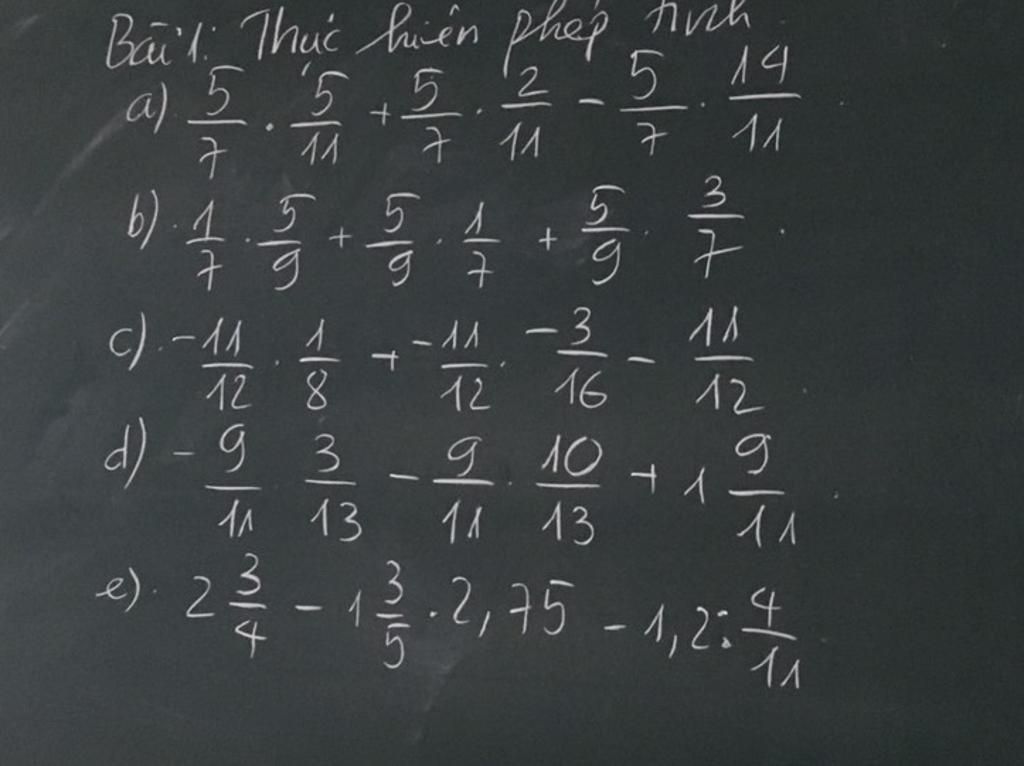 Bài 1: Thực hiện phép tính
a) 5/7 . 5/11 + 5/7 . 2/11 - 5/7 . 14/11
b) 1/7 . 5/9 + 5/9 . 1/7 + 5/9 . 3/7
c) -11/12 . 1/8 + -11/12 . -3/16 - 11/12
d) -9/11 3/13 - 9/11 . 10/13 + 1 9/11
e) 2 3/4 - 1 3/5 . 2,75 - 1,2 : 4/11